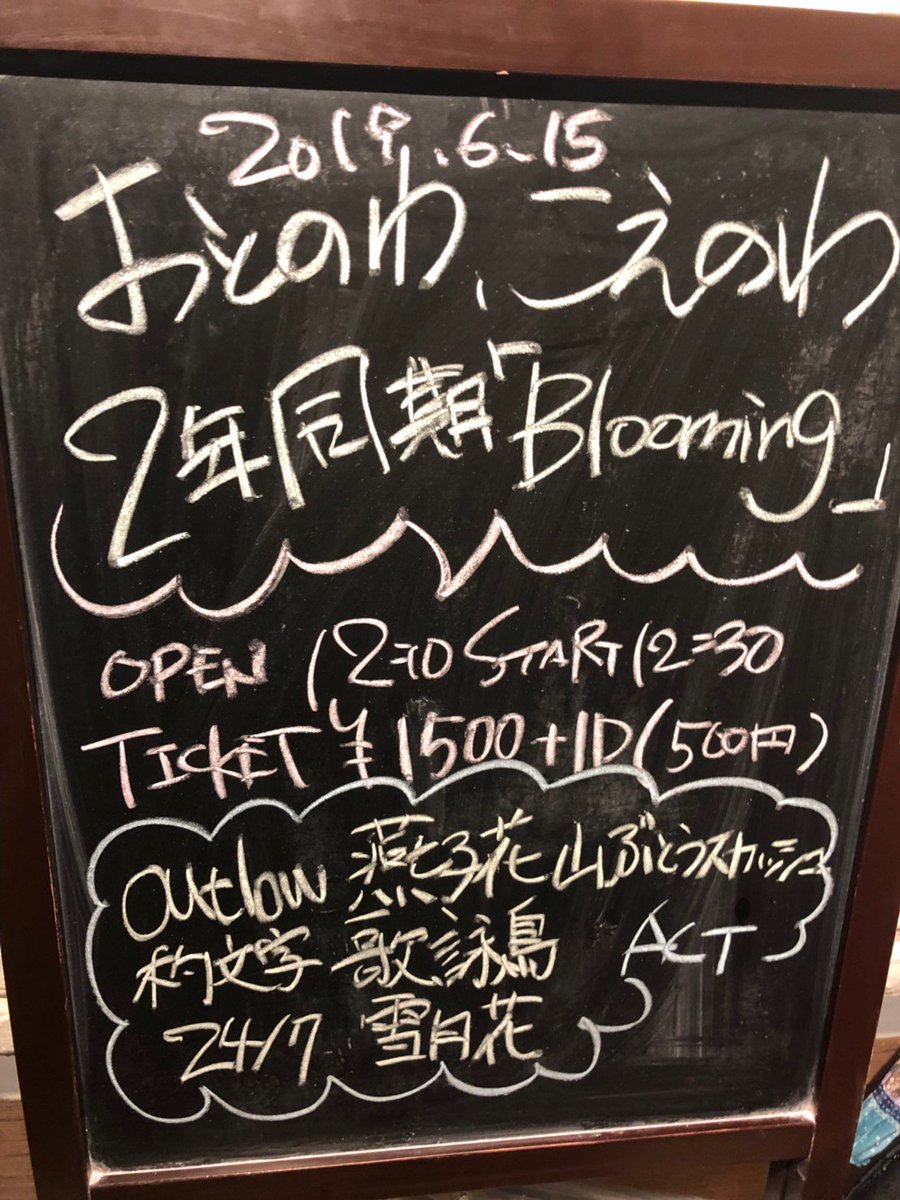 2019.6.15
おとのわ、こえのわ
2年同期「Blooming」
OPEN 12:10 START 12:30
TICKET ¥1500+1D(500円)
outlow 燕子花 山ぶどうスカッシュ
杓文字 歌詠鳥 ACT
24/7 雪月花